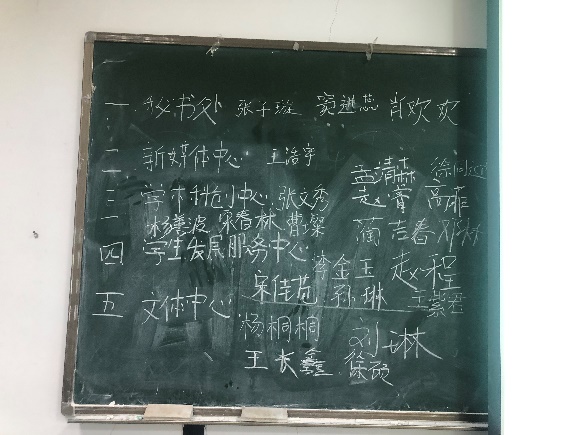 一 秘书处 张子璇 窦进蕊 肖欢欢
二 新媒体中心 王浩宇 孟清森
三 学术科创中心 张文秀 赵 高菲
杨美波 宋春林 曹璨 蔺吉春 邓琳
四 学生发展服务中心 李金玉 赵程
宋佳苑 孙琳 王紫君
五 文体中心
杨桐桐 刘琳
王长鑫 徐硕